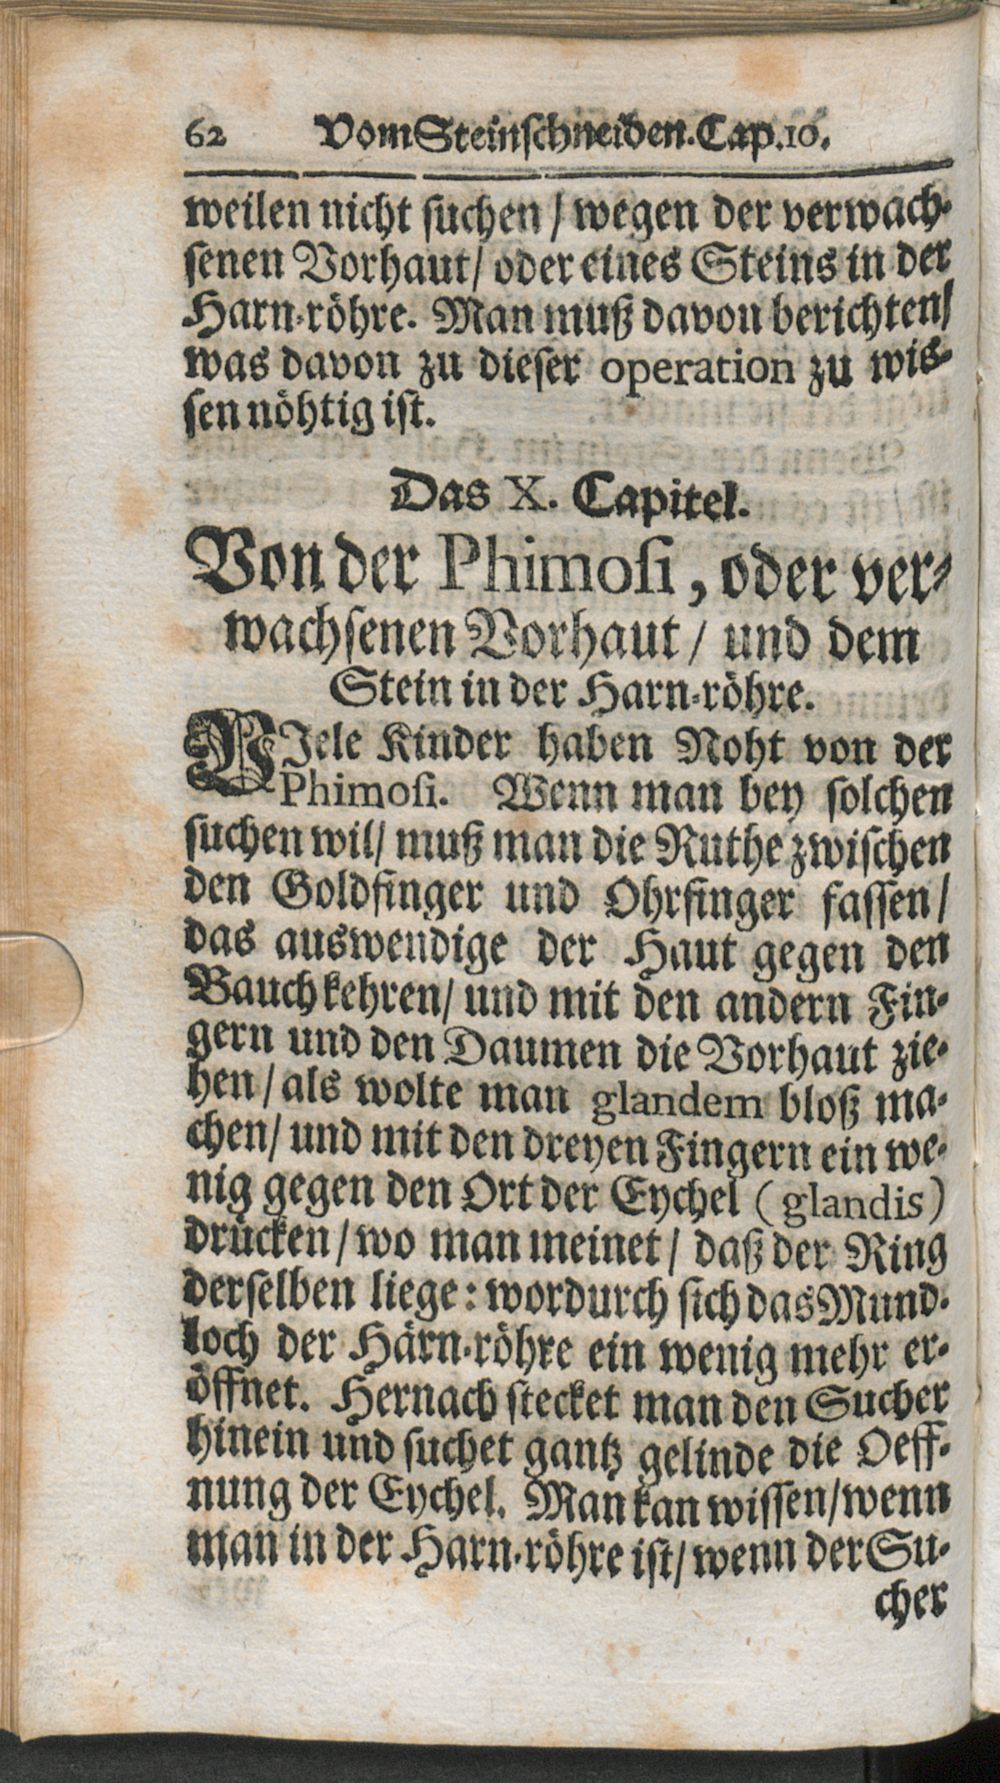 62 Vom Steinschneiden. Cap. 10.
weilen nicht suchen / wegen der verwach-
senen Vorhaut / oder eines Steins in der
Harn-röhre. Man muß davon berichten /
was davon zu dieser operation zu wis-
sen nöhtig ist.
Das X. Capitel.
Von der Phimosi, oder ver-
wachsenen Vorhaut / und dem
Stein in der Harn-röhre.
VJele Kinder haben Noht von der
Phimosi. Wenn man bey solchen
suchen wil / muß man die Ruthe zwischen
den Goldfinger und Ohrfinger fassen /
das auswendige der Haut gegen den
Bauch kehren / und mit den andern Fin-
gern und den Daumen die Vorhaut zie-
hen / als wolte man glandem bloß ma-
chen / und mit den dreyen Fingern ein we-
nig gegen den Ort der Eychel (glandis)
drücken / wo man meinet / daß der Ring
derselben liege: wordurch sich das Mund-
loch der Härn-röhre ein wenig mehr er-
öffnet. Hernach stecket man den Sucher
hinein und suchet gantz gelinde die Oeff-
nung der Eychel. Man kan wissen / wenn
man in der Harn-röhre ist / wenn der Su-
cher